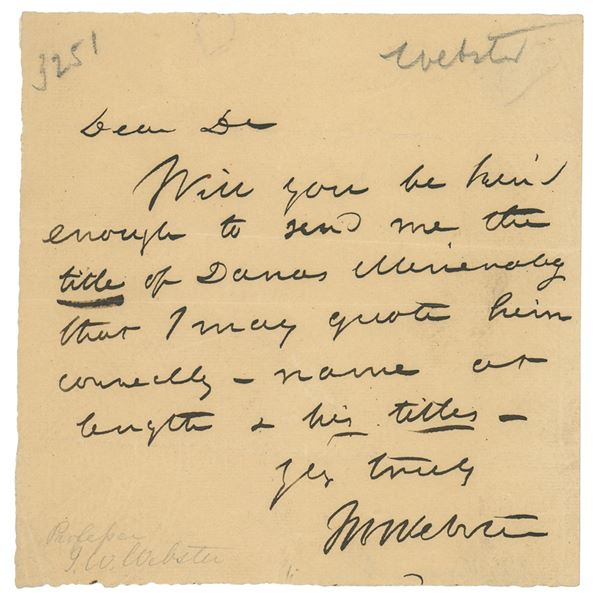 3251
Webster
Dear Dr
Will you be kind
enough to send me the
title of Danas Mineralogy
that I may quote him
correctly – name at
length & his titles –
yrs truly
JWWebster
Professor
J. W. Webster